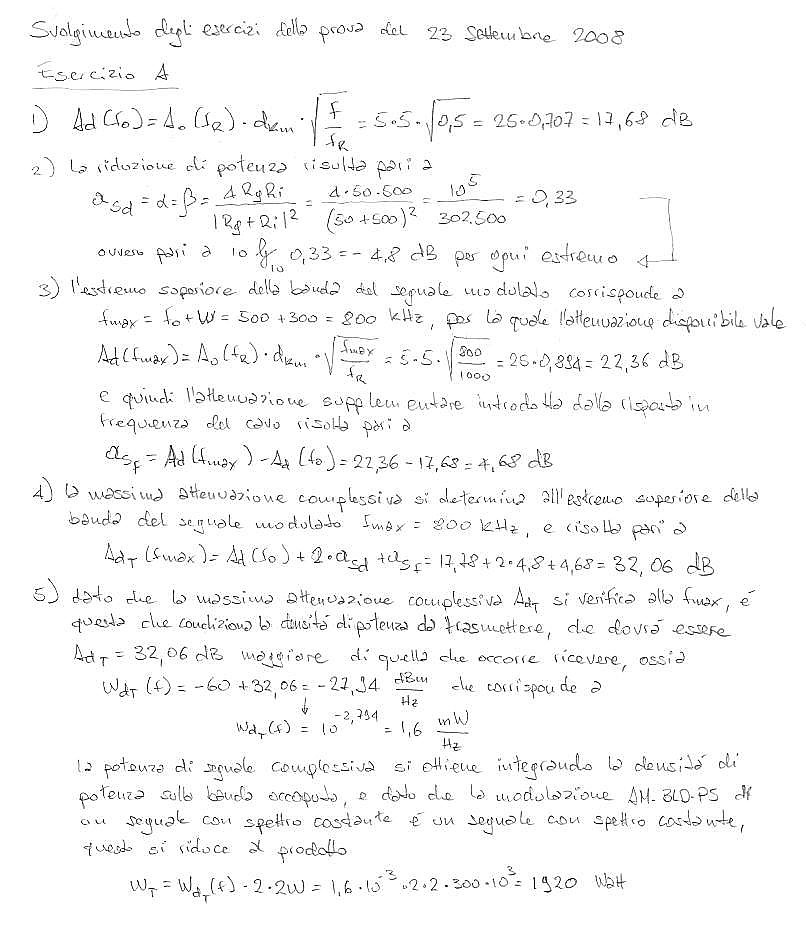 Svolgimento degli esercizi della prova del 23 Settembre 2008
Esercizio A
1) Ad(f₀) = A₀(f_R) · d_km · √(f/f_R) = 5·5·√0,5 = 25·0,707 = 17,68 dB
2) La riduzione di potenza risulta pari a
a_sd = α = β = 4RgRi / |Rg+Ri|² = 4·50·500 / (50+500)² = 10⁵ / 302.500 = 0,33
ovvero pari a 10 lg₁₀ 0,33 = -4,8 dB per ogni estremo
3) l'estremo superiore della banda del segnale modulato corrisponde a
fmax = f₀+W = 500+300 = 800 kHz, per la quale l'attenuazione disponibile vale
Ad(fmax) = A₀(f_R) · d_km · √(fmax/f_R) = 5·5·√(800/1000) = 25·0,894 = 22,36 dB
e quindi l'attenuazione supplementare introdotta dalla risposta in
frequenza del cavo risulta pari a
a_sf = Ad(fmax) - Ad(f₀) = 22,36 - 17,68 = 4,68 dB
4) la massima attenuazione complessiva si determina all'estremo superiore della
banda del segnale modulato fmax = 800 kHz, e risulta pari a
Ad_T(fmax) = Ad(f₀) + 2·a_sd + a_sf = 17,78 + 2·4,8 + 4,68 = 32,06 dB
5) dato che la massima attenuazione complessiva Ad_T si verifica alla fmax, é
questa che condiziona la densitá di potenza da trasmettere, che dovrá essere
Ad_T = 32,06 dB maggiore di quella che occorre ricevere, ossia
Wd_T(f) = -60 + 32,06 = -27,94 dBm/Hz che corrisponde a
↓
Wd_T(f) = 10^-2,794 = 1,6 mW/Hz
la potenza di segnale complessiva si ottiene integrando la densitá di
potenza sulla banda occupata, e dato che la modulazione AM-BLD-PS di
un segnale con spettro costante é un segnale con spettro costante,
questo si riduce al prodotto
W_T = Wd_T(f) · 2·2W = 1,6·10⁻³ · 2·2·300·10³ = 1920 Watt